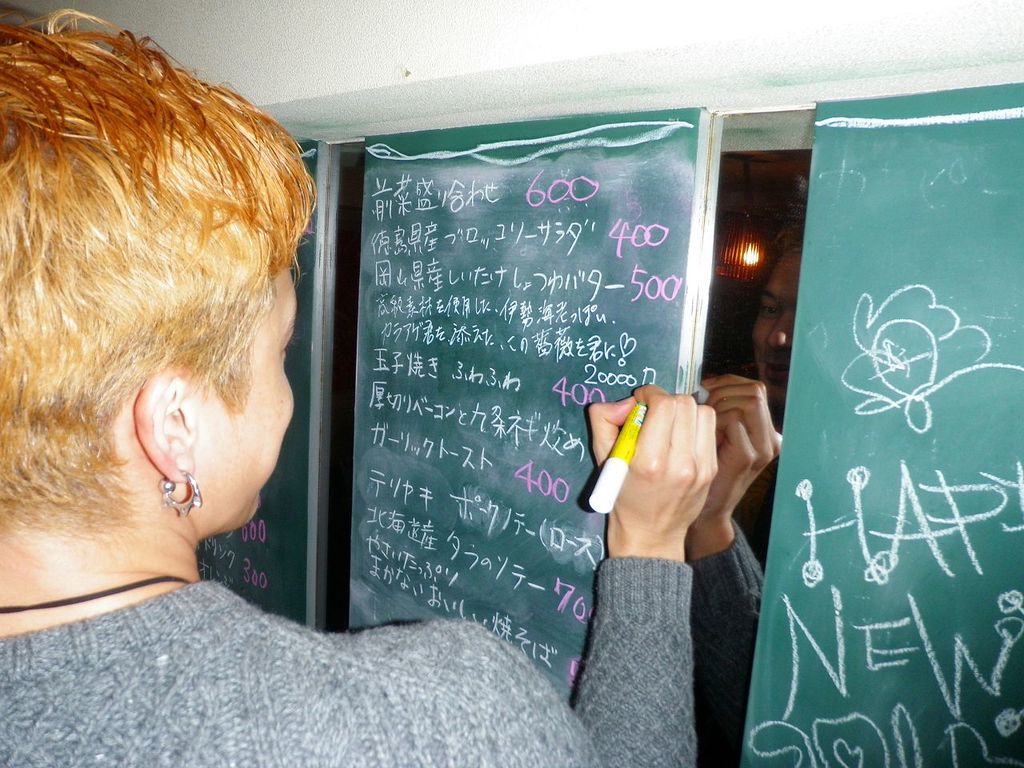 前菜盛り合わせ 600
徳島県産ブロッコリーサラダ 400
岡山県産しいたけしょうゆバター 500
高級素材を使用した、伊勢海老っぽい、
カラアゲ君を添えた、この薔薇を君に♡!
20000
玉子焼き ふわふわ 400
厚切りベーコンと九条ネギ炒め
ガーリックトースト 400
テリヤキ ポークソテー(ロース)
北海道産 タラのソテー 70
やさいたっぷり
まかないおいしい焼そば
600
リンク
300
HAPY
NEW